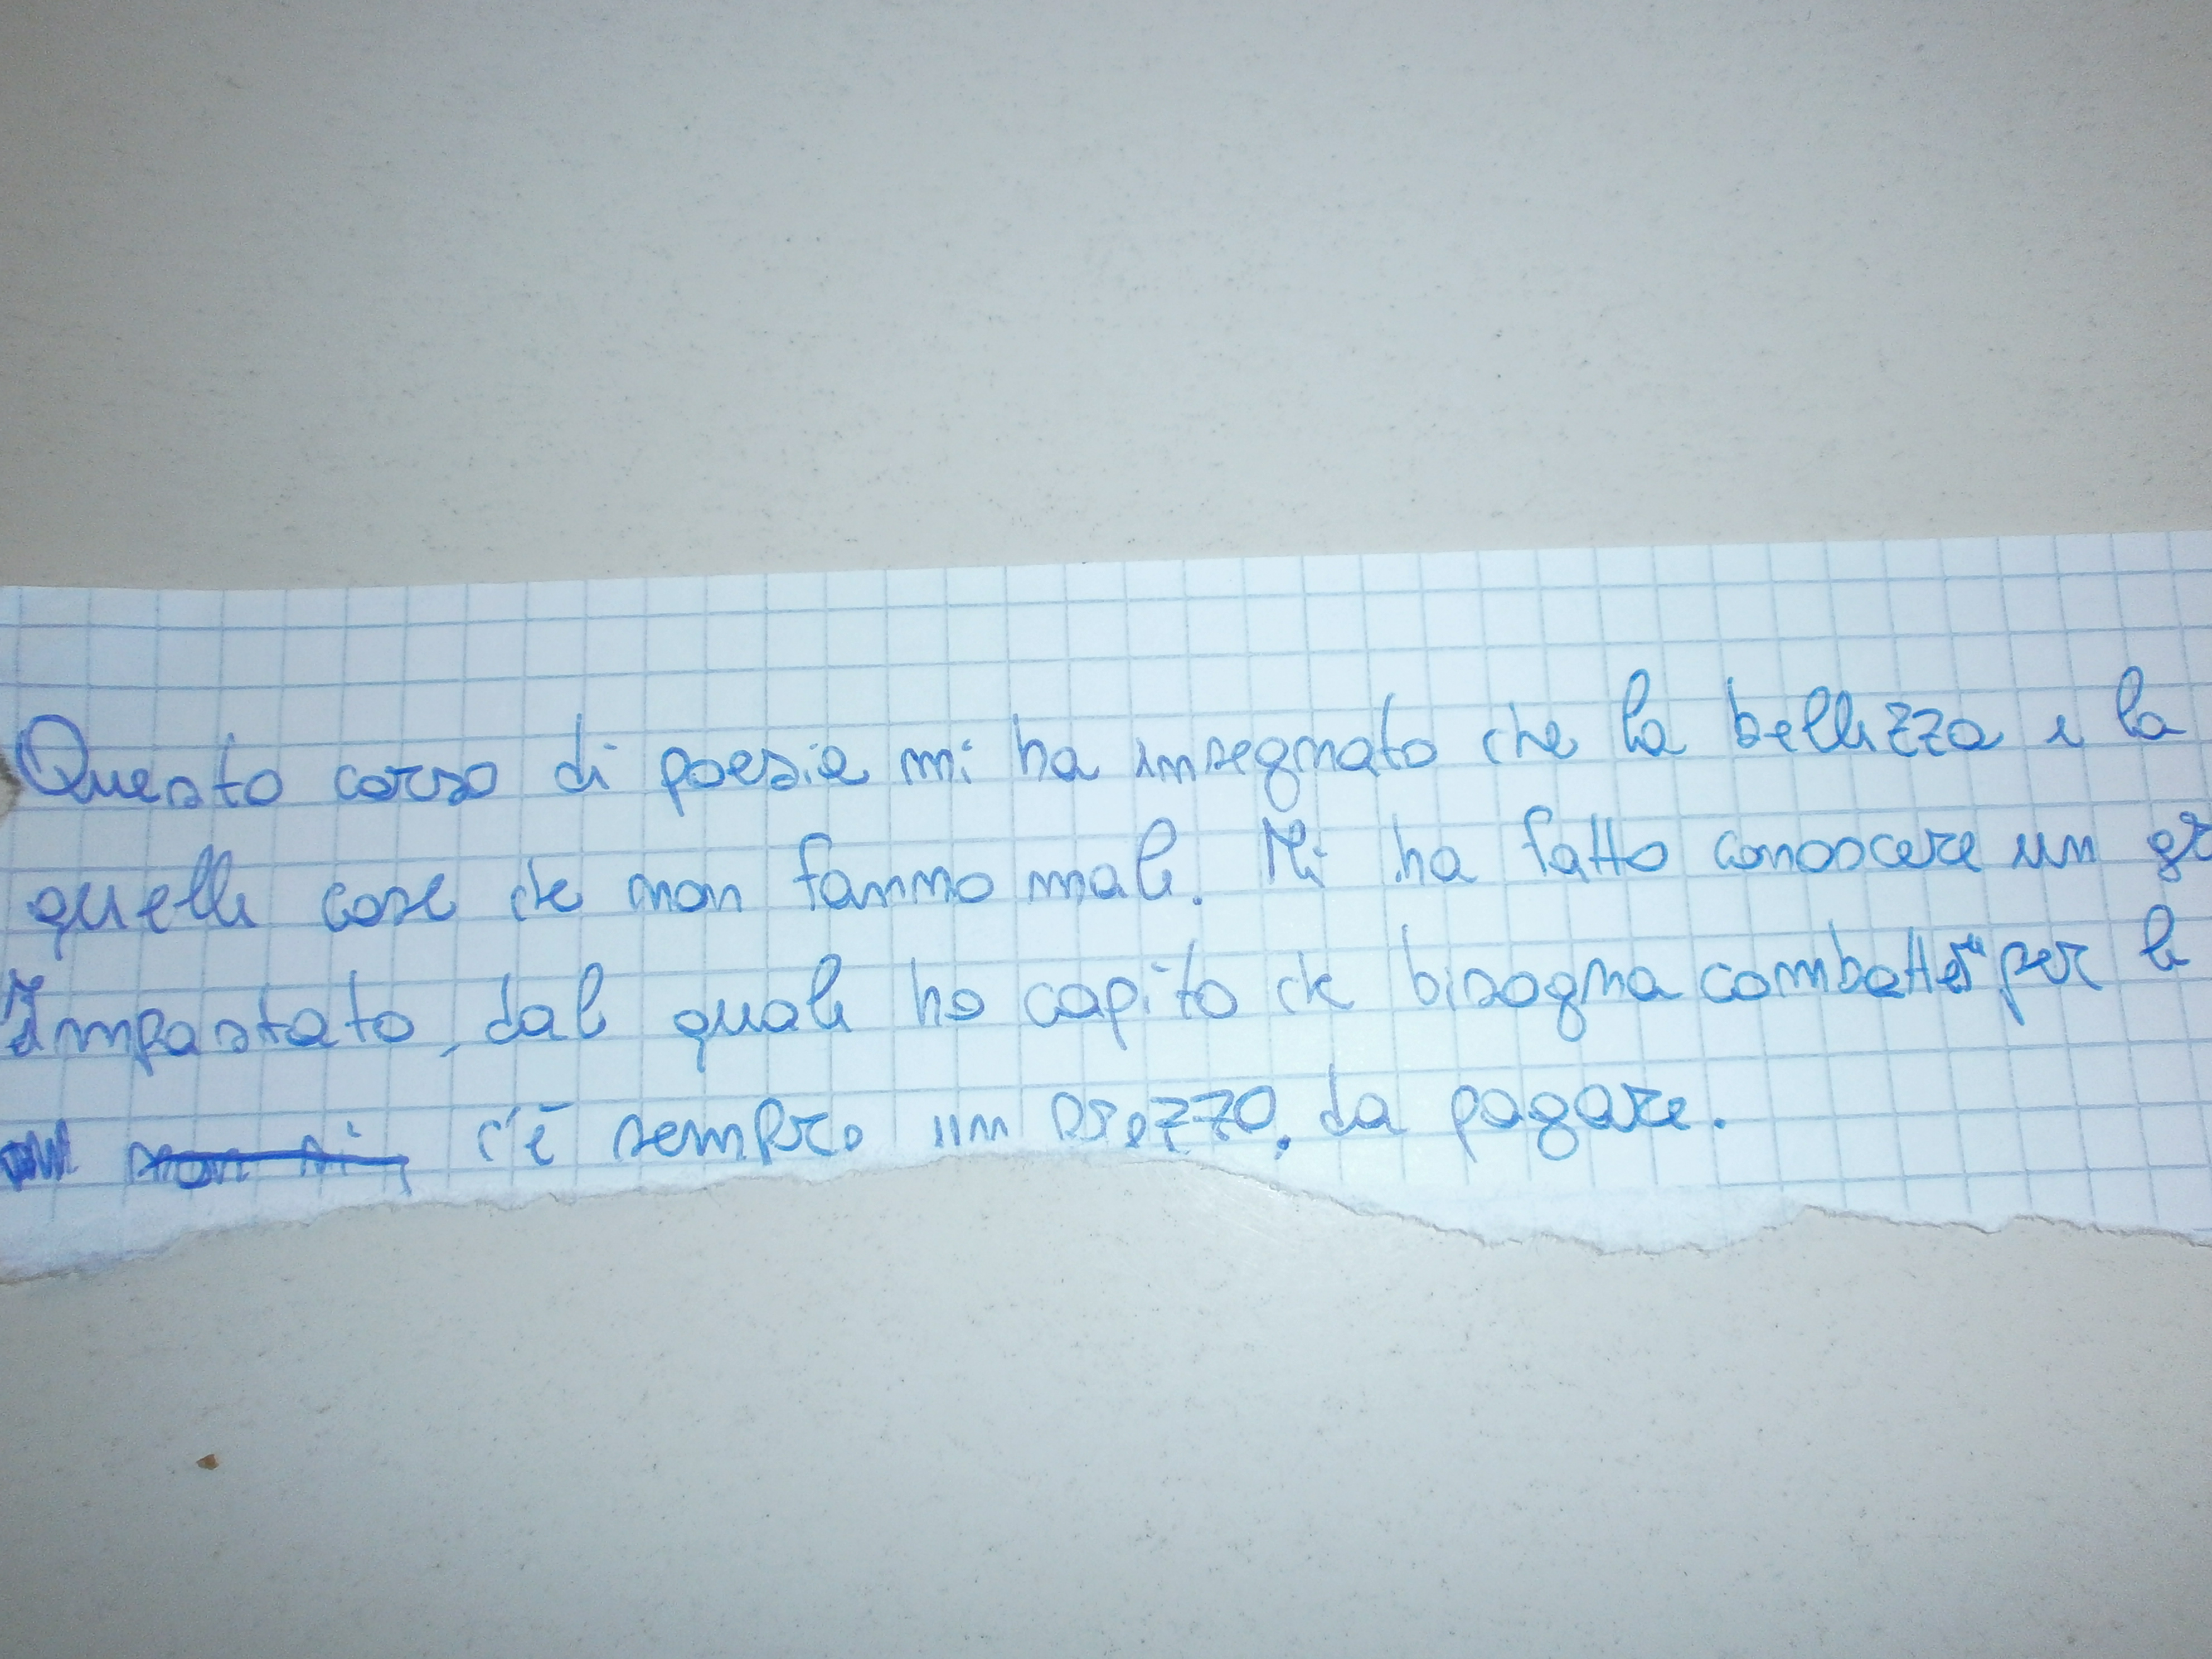 Questo corso di poesia mi ha insegnato che la bellezza e la
quelle cose che non fanno male. Mi ha fatto conoscere un
Impastato, dal quale ho capito che bisogna combattere per le
c'è sempre un prezzo, da pagare.